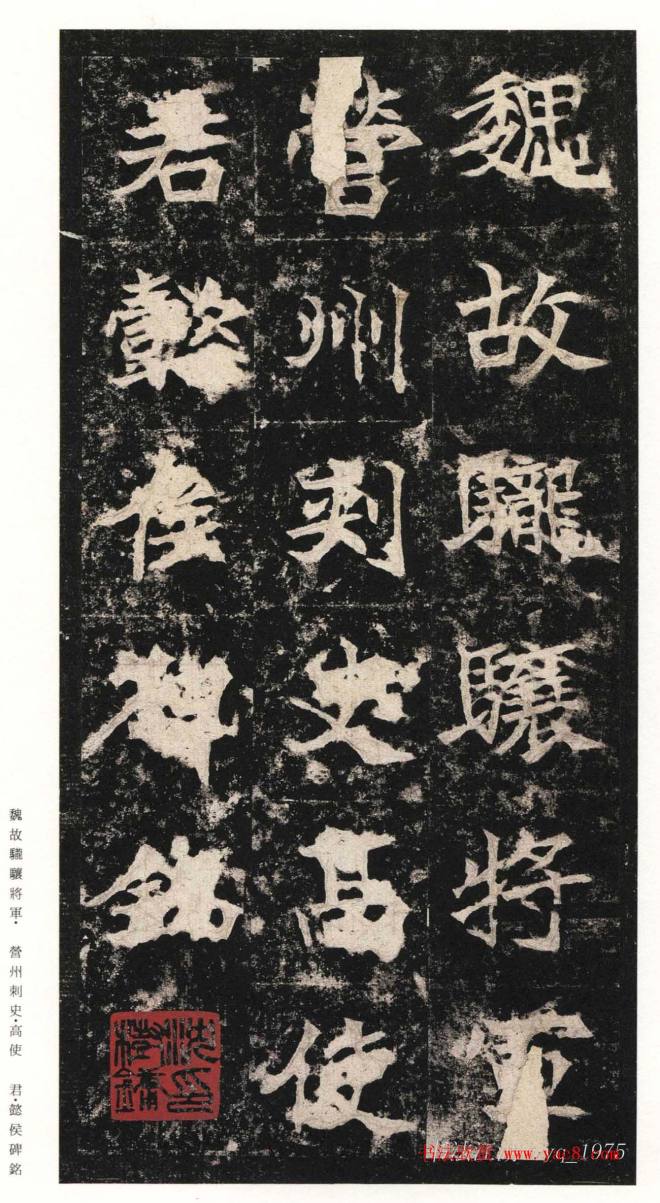 魏故驣驤將軍
營州刺史高使
君懿侯碑銘
魏故驣驤將軍· 營州刺史·高使 君·懿侯碑銘
书法欣赏 www.yac8.com
yq_1975